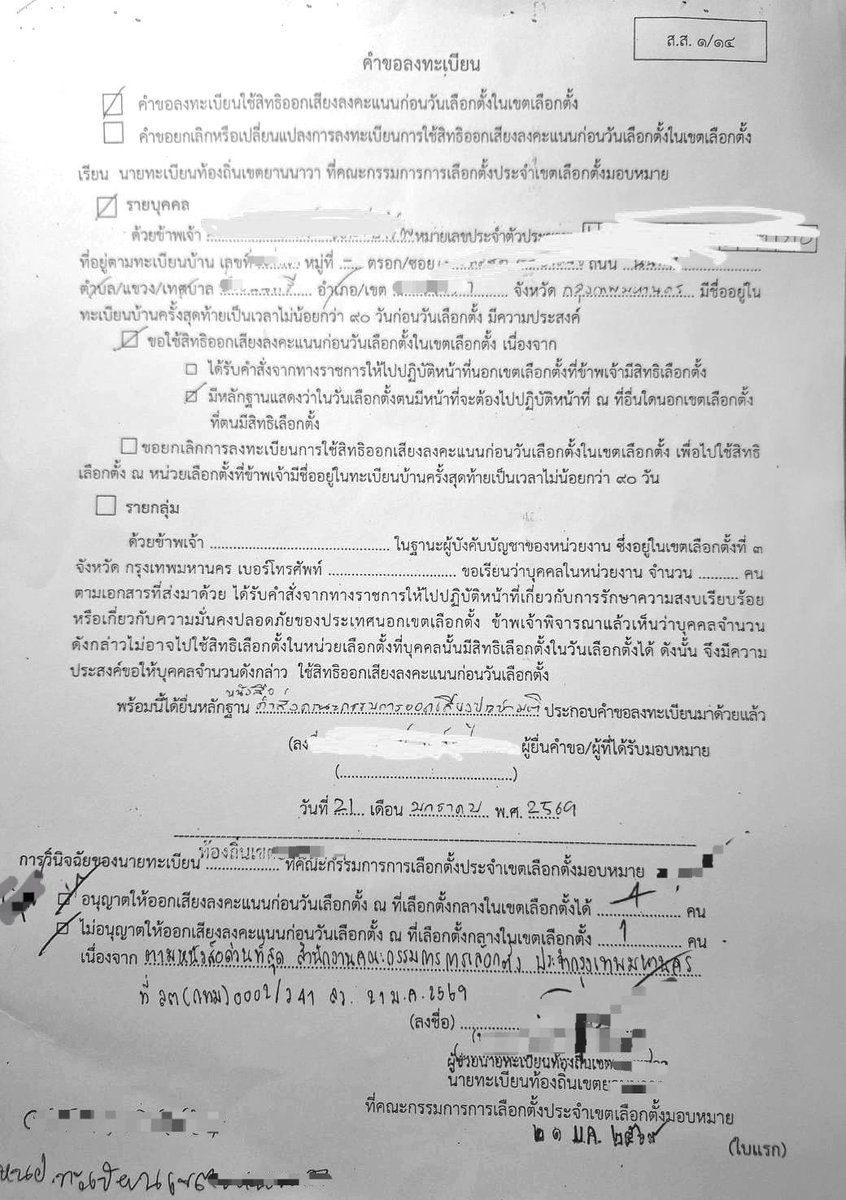 ส.ส. ๑/๑๔
คำขอลงทะเบียน
คำขอลงทะเบียนใช้สิทธิออกเสียงลงคะแนนก่อนวันเลือกตั้งในเขตเลือกตั้ง
คำขอยกเลิกหรือเปลี่ยนแปลงการลงทะเบียนการใช้สิทธิออกเสียงลงคะแนนก่อนวันเลือกตั้งในเขตเลือกตั้ง
เรียน นายทะเบียนท้องถิ่นเขตยานนาวา ที่คณะกรรมการการเลือกตั้งประจำเขตเลือกตั้งมอบหมาย
รายบุคคล
ด้วยข้าพเจ้า หมายเลขประจำตัวประ
ที่อยู่ตามทะเบียนบ้าน เลขที่ หมู่ที่ - ตรอก/ซอย ถนน
ตำบล/แขวง/เทศบาล อำเภอ/เขต จังหวัด กรุงเทพมหานคร มีชื่ออยู่ใน
ทะเบียนบ้านครั้งสุดท้ายเป็นเวลาไม่น้อยกว่า ๙๐ วันก่อนวันเลือกตั้ง มีความประสงค์
ขอใช้สิทธิออกเสียงลงคะแนนก่อนวันเลือกตั้งในเขตเลือกตั้ง เนื่องจาก
ได้รับคำสั่งจากทางราชการให้ไปปฏิบัติหน้าที่นอกเขตเลือกตั้งที่ข้าพเจ้ามีสิทธิเลือกตั้ง
มีหลักฐานแสดงว่าในวันเลือกตั้งตนมีหน้าที่จะต้องไปปฏิบัติหน้าที่ ณ ที่อื่นใดนอกเขตเลือกตั้ง
ที่ตนมีสิทธิเลือกตั้ง
ขอยกเลิกการลงทะเบียนการใช้สิทธิออกเสียงลงคะแนนก่อนวันเลือกตั้งในเขตเลือกตั้ง เพื่อไปใช้สิทธิ
เลือกตั้ง ณ หน่วยเลือกตั้งที่ข้าพเจ้ามีชื่ออยู่ในทะเบียนบ้านครั้งสุดท้ายเป็นเวลาไม่น้อยกว่า ๙๐ วัน
รายกลุ่ม
ด้วยข้าพเจ้า ........................................ ในฐานะผู้บังคับบัญชาของหน่วยงาน ซึ่งอยู่ในเขตเลือกตั้งที่ ๓
จังหวัด กรุงเทพมหานคร เบอร์โทรศัพท์ ............................ ขอเรียนว่าบุคคลในหน่วยงาน จำนวน ......... คน
ตามเอกสารที่ส่งมาด้วย ได้รับคำสั่งจากทางราชการให้ไปปฏิบัติหน้าที่เกี่ยวกับการรักษาความสงบเรียบร้อย
หรือเกี่ยวกับความมั่นคงปลอดภัยของประเทศนอกเขตเลือกตั้ง ข้าพเจ้าพิจารณาแล้วเห็นว่าบุคคลจำนวน
ดังกล่าวไม่อาจไปใช้สิทธิเลือกตั้งในหน่วยเลือกตั้งที่บุคคลนั้นมีสิทธิเลือกตั้งในวันเลือกตั้งได้ ดังนั้น จึงมีความ
ประสงค์ขอให้บุคคลจำนวนดังกล่าว ใช้สิทธิออกเสียงลงคะแนนก่อนวันเลือกตั้ง
หนังสือ
พร้อมนี้ได้ยื่นหลักฐาน คำสั่งคณะกรรมการออกเสียงประชามติ ประกอบคำขอลงทะเบียนมาด้วยแล้ว
(ลง ผู้ยื่นคำขอ/ผู้ที่ได้รับมอบหมาย
(........................................)
วันที่ 21 เดือน มกราคม พ.ศ. 2569
การวินิจฉัยของนายทะเบียน ท้องถิ่นเขต ที่คณะกรรมการการเลือกตั้งประจำเขตเลือกตั้งมอบหมาย
อนุญาตให้ออกเสียงลงคะแนนก่อนวันเลือกตั้ง ณ ที่เลือกตั้งกลางในเขตเลือกตั้งได้ คน
ไม่อนุญาตให้ออกเสียงลงคะแนนก่อนวันเลือกตั้ง ณ ที่เลือกตั้งกลางในเขตเลือกตั้ง 1 คน
เนื่องจาก ตามหนังสือด่วนที่สุด สำนักงานคณะกรรมการการเลือกตั้ง ประจำกรุงเทพมหานคร
ที่ ลต(กทม)0002/ว41 ลว. 21 ม.ค.2569
(ลงชื่อ)
ผู้ช่วยนายทะเบียนท้องถิ่นเขต
นายทะเบียนท้องถิ่นเขตย
ที่คณะกรรมการการเลือกตั้งประจำเขตเลือกตั้งมอบหมาย
๒๑ ม.ค. ๒๕๖๙
(ใบแรก)